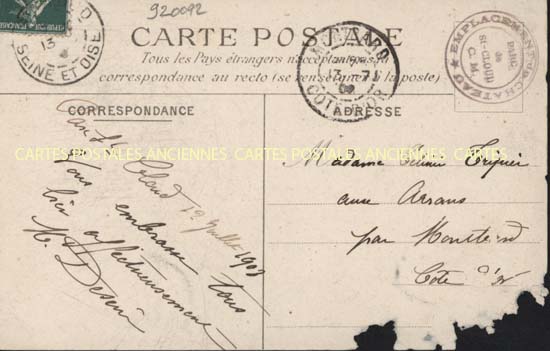 920092
CARTE POSTALE
Tous les Pays étrangers n'acceptent pas la
correspondance au recto (se renseigner à la poste)
CORRESPONDANCE
ADRESSE
SEINE ET OISE
13
MONTBARD
COTE D'OR
EMPLACEMENT DU CHATEAU
PARC
de
St-CLOUD
CARTES POSTALES ANCIENNES CARTES POSTALES ANCIENNES CARTES POSTALES ANCIENNES
St Cloud 12 Juillet 1909
Vous embrasse tous
bien affectueusement
Madame
aux Arrans
par Montbard
Côte d'Or